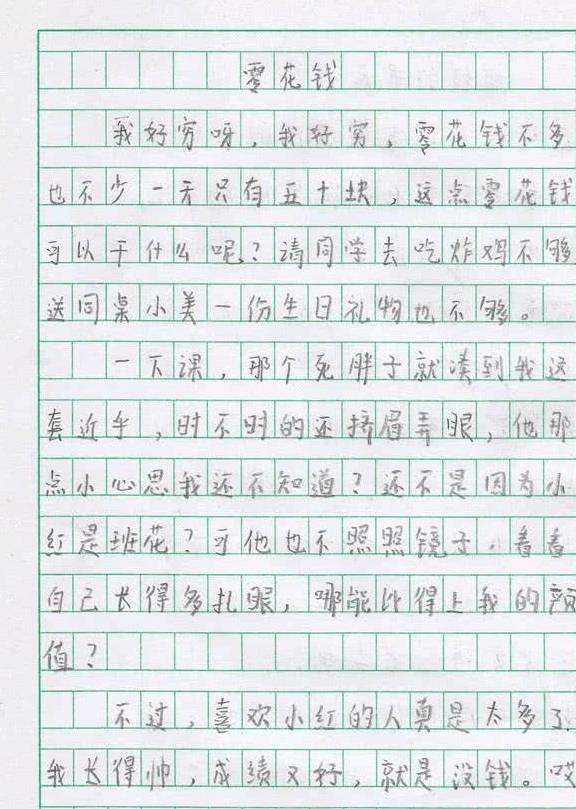 零花钱
我好穷呀，我好穷，零花钱不多
也不少一天只有五十块，这点零花钱
可以干什么呢？请同学去吃炸鸡不够
送同桌小美一份生日礼物也不够。
一下课，那个死胖子就凑到我这
套近乎，时不时的还挤眉弄眼，他那
点小心思我还不知道？还不是因为小
红是班花？可他也不照照镜子，看看
自己长得多扎眼，哪能比得上我的颜
值？
不过，喜欢小红的人真是太多了
我长得帅，成绩又好，就是没钱。哎